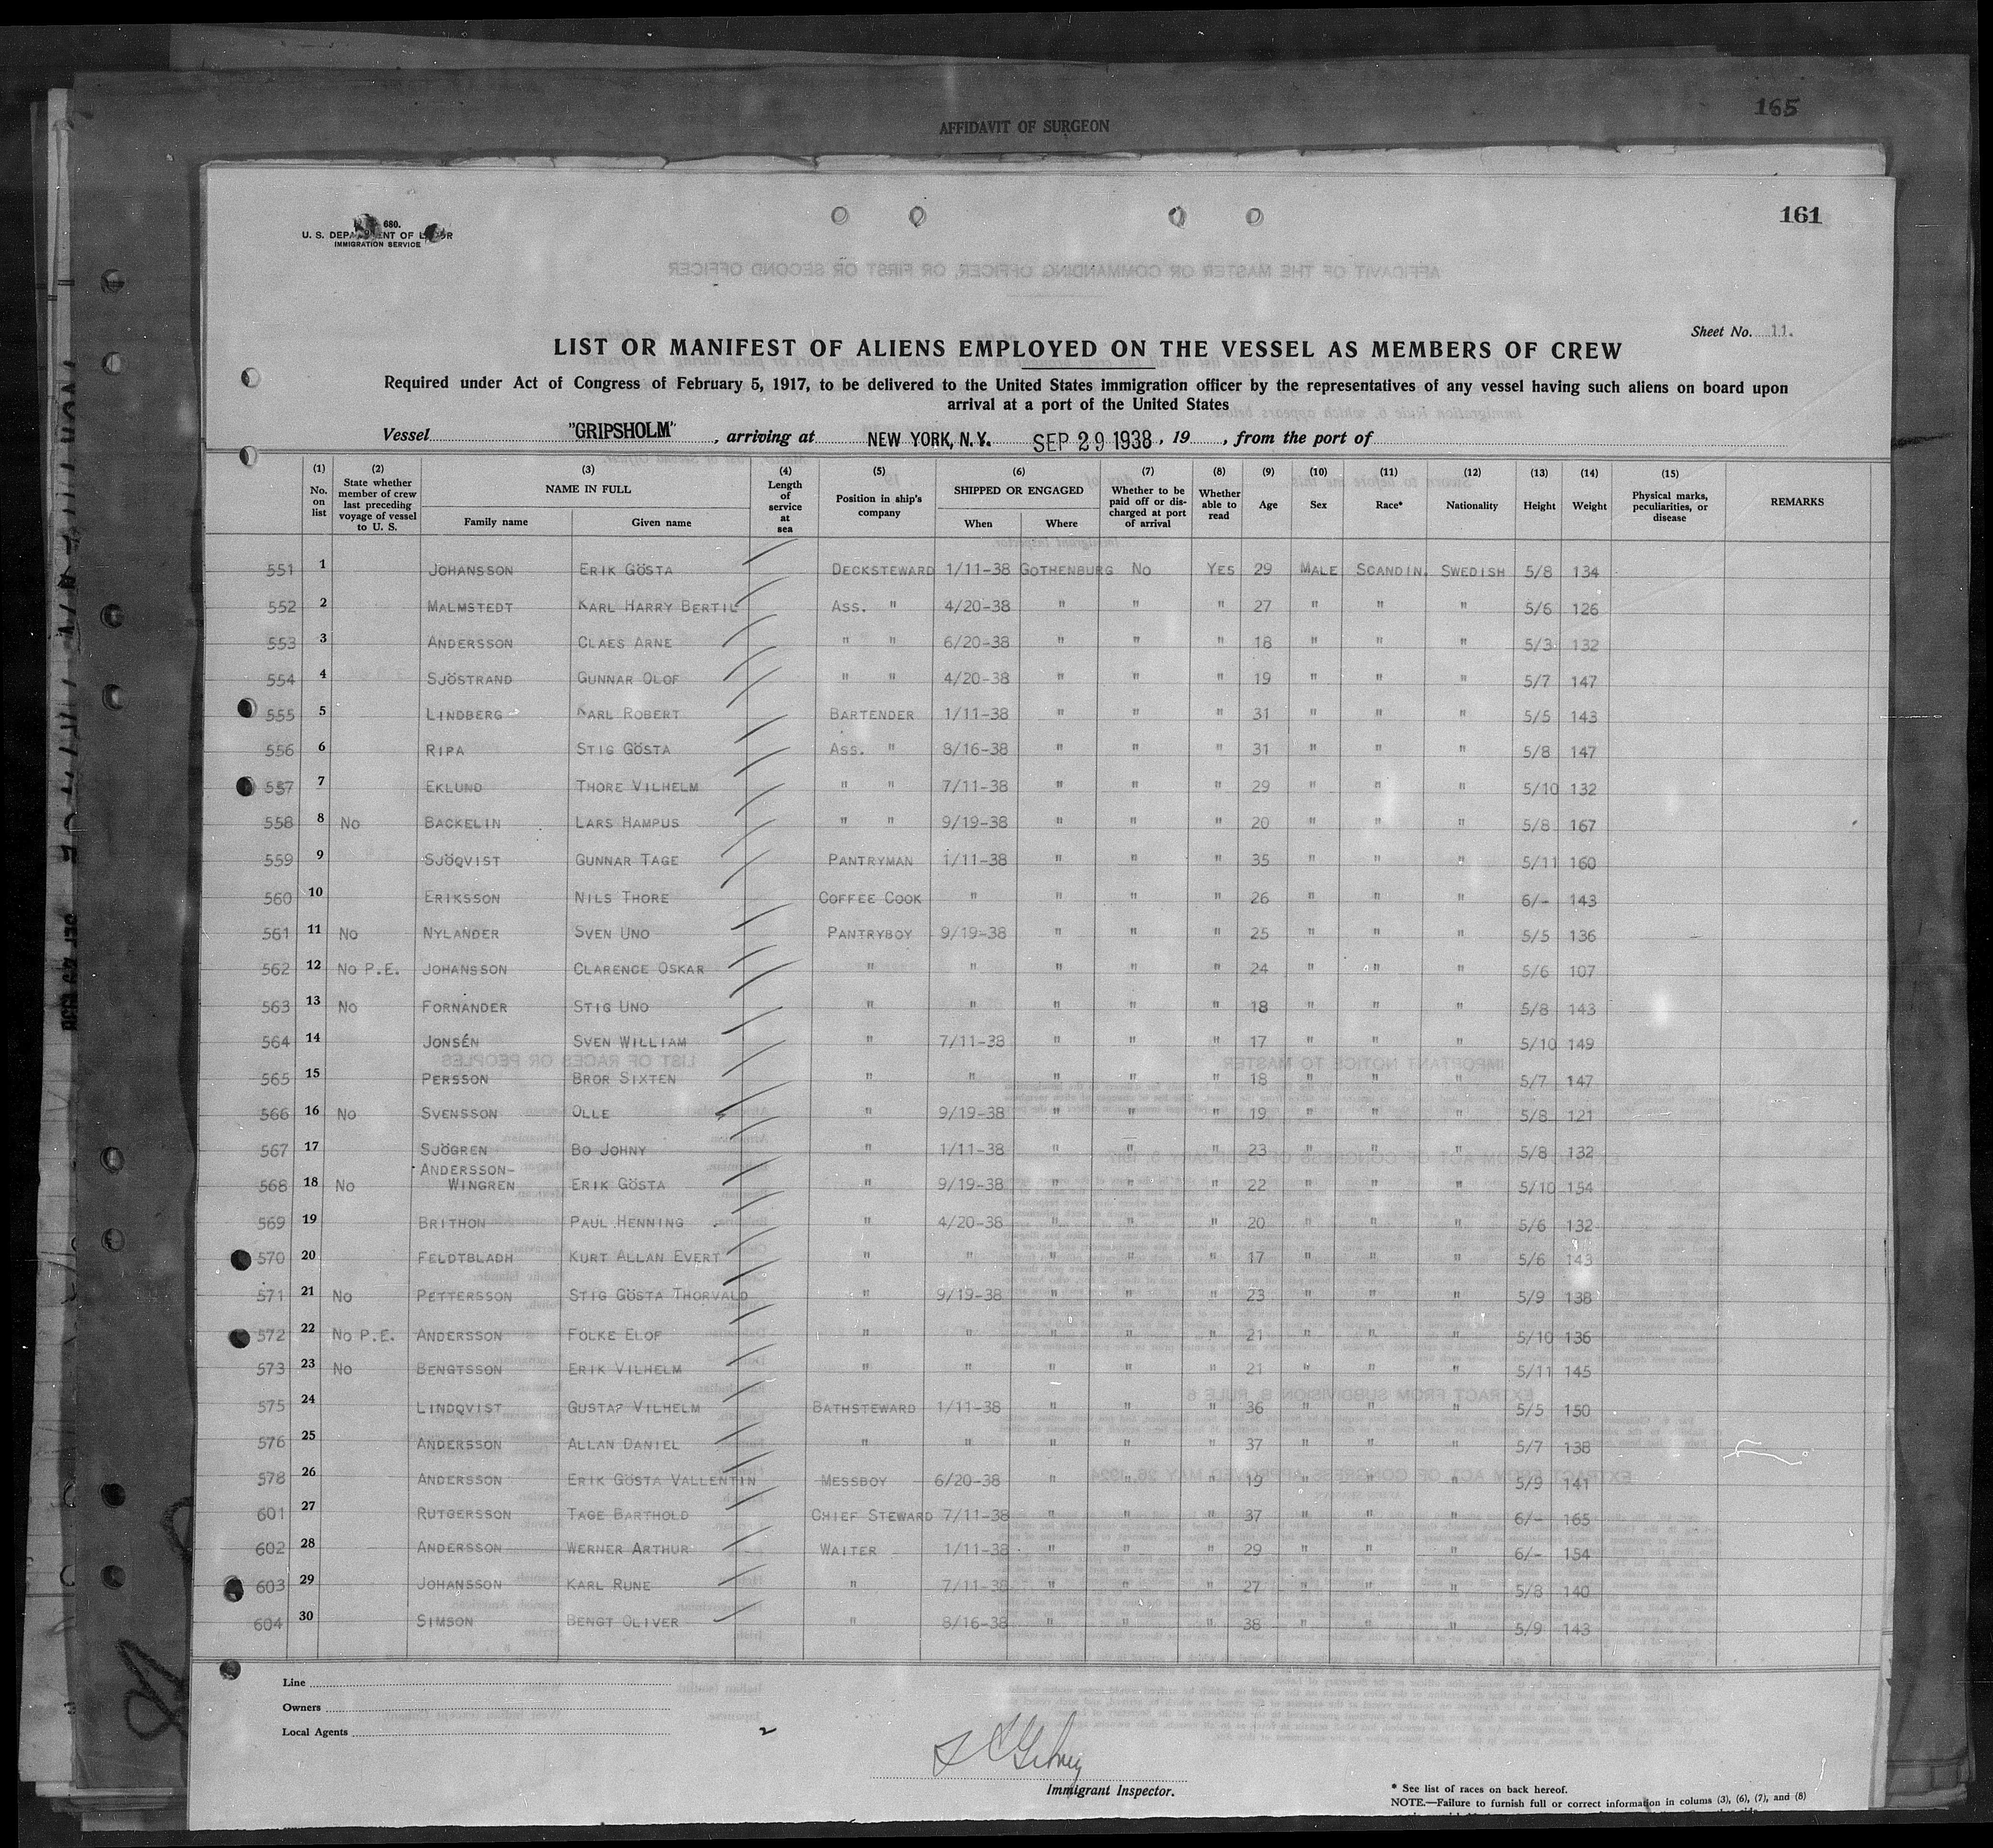 165
AFFIDAVIT OF SURGEON
161
680.
U. S. DEPARTMENT OF LABOR
IMMIGRATION SERVICE
AFFIDAVIT OF THE MASTER OR COMMANDING OFFICER, OR FIRST OR SECOND OFFICER
Sheet No. 11.
LIST OR MANIFEST OF ALIENS EMPLOYED ON THE VESSEL AS MEMBERS OF CREW
Required under Act of Congress of February 5, 1917, to be delivered to the United States immigration officer by the representatives of any vessel having such aliens on board upon
arrival at a port of the United States
Vessel "GRIPSHOLM", arriving at NEW YORK, N.Y. SEP 29 1938, 19 , from the port of
(1) No. on list (2) State whether member of crew last preceding voyage of vessel to U. S. (3) NAME IN FULL Family name Given name (4) Length of service at sea (5) Position in ship's company (6) SHIPPED OR ENGAGED When Where (7) Whether to be paid off or discharged at port of arrival (8) Whether able to read (9) Age (10) Sex (11) Race* (12) Nationality (13) Height (14) Weight (15) Physical marks, peculiarities, or disease REMARKS
551 1 JOHANSSON ERIK GÖSTA DECKSTEWARD 1/11-38 GOTHENBURG NO YES 29 MALE SCANDIN. SWEDISH 5/8 134
552 2 MALMSTEDT KARL HARRY BERTIL ASS. " 4/20-38 " " " 27 " " " 5/6 126
553 3 ANDERSSON CLAES ARNE " " 6/20-38 " " " 18 " " " 5/3 132
554 4 SJÖSTRAND GUNNAR OLOF " " 4/20-38 " " " 19 " " " 5/7 147
555 5 LINDBERG KARL ROBERT BARTENDER 1/11-38 " " " 31 " " " 5/5 143
556 6 RIPA STIG GÖSTA ASS. " 8/16-38 " " " 31 " " " 5/8 147
557 7 EKLUND THORE VILHELM " " 7/11-38 " " " 29 " " " 5/10 132
558 8 NO BACKELIN LARS HAMPUS " " 9/19-38 " " " 20 " " " 5/8 167
559 9 SJÖQVIST GUNNAR TAGE PANTRYMAN 1/11-38 " " " 35 " " " 5/11 160
560 10 ERIKSSON NILS THORE COFFEE COOK " " " " 26 " " " 6/- 143
561 11 NO NYLANDER SVEN UNO PANTRYBOY 9/19-38 " " " 25 " " " 5/5 136
562 12 NO P.E. JOHANSSON CLARENCE OSKAR " " " " " 24 " " " 5/6 107
563 13 NO FORNANDER STIG UNO " " " " " 18 " " " 5/8 143
564 14 JONSÉN SVEN WILLIAM " 7/11-38 " " " 17 " " " 5/10 149
565 15 PERSSON BROR SIXTEN " " " " " 18 " " " 5/7 147
566 16 NO SVENSSON OLLE " 9/19-38 " " " 19 " " " 5/8 121
567 17 SJÖGREN BO JOHNY " 1/11-38 " " " 23 " " " 5/8 132
ANDERSSON-
568 18 NO WINGREN ERIK GÖSTA " 9/19-38 " " " 22 " " " 5/10 154
569 19 BRITHON PAUL HENNING " 4/20-38 " " " 20 " " " 5/6 132
570 20 FELDTBLADH KURT ALLAN EVERT " " " " " 17 " " " 5/6 143
571 21 NO PETTERSSON STIG GÖSTA THORVALD " 9/19-38 " " " 23 " " " 5/9 138
572 22 NO P.E. ANDERSSON FOLKE ELOF " " " " " 21 " " " 5/10 136
573 23 NO BENGTSSON ERIK VILHELM " " " " " 21 " " " 5/11 145
575 24 LINDQVIST GUSTAF VILHELM BATHSTEWARD 1/11-38 " " " 36 " " " 5/5 150
576 25 ANDERSSON ALLAN DANIEL " " " " " 37 " " " 5/7 138
578 26 ANDERSSON ERIK GÖSTA VALLENTIN MESSBOY 6/20-38 " " " 19 " " " 5/9 141
601 27 RUTGERSSON TAGE BARTHOLD CHIEF STEWARD 7/11-38 " " " 37 " " " 6/- 165
602 28 ANDERSSON WERNER ARTHUR WAITER 1/11-38 " " " 29 " " " 6/- 154
603 29 JOHANSSON KARL RUNE " 7/11-38 " " " 27 " " " 5/8 140
604 30 SIMSON BENGT OLIVER " 8/16-38 " " " 38 " " " 5/9 143
Line
Owners
Local Agents
2
Immigrant Inspector.
* See list of races on back hereof.
NOTE.—Failure to furnish full or correct information in colums (3), (6), (7), and (8)